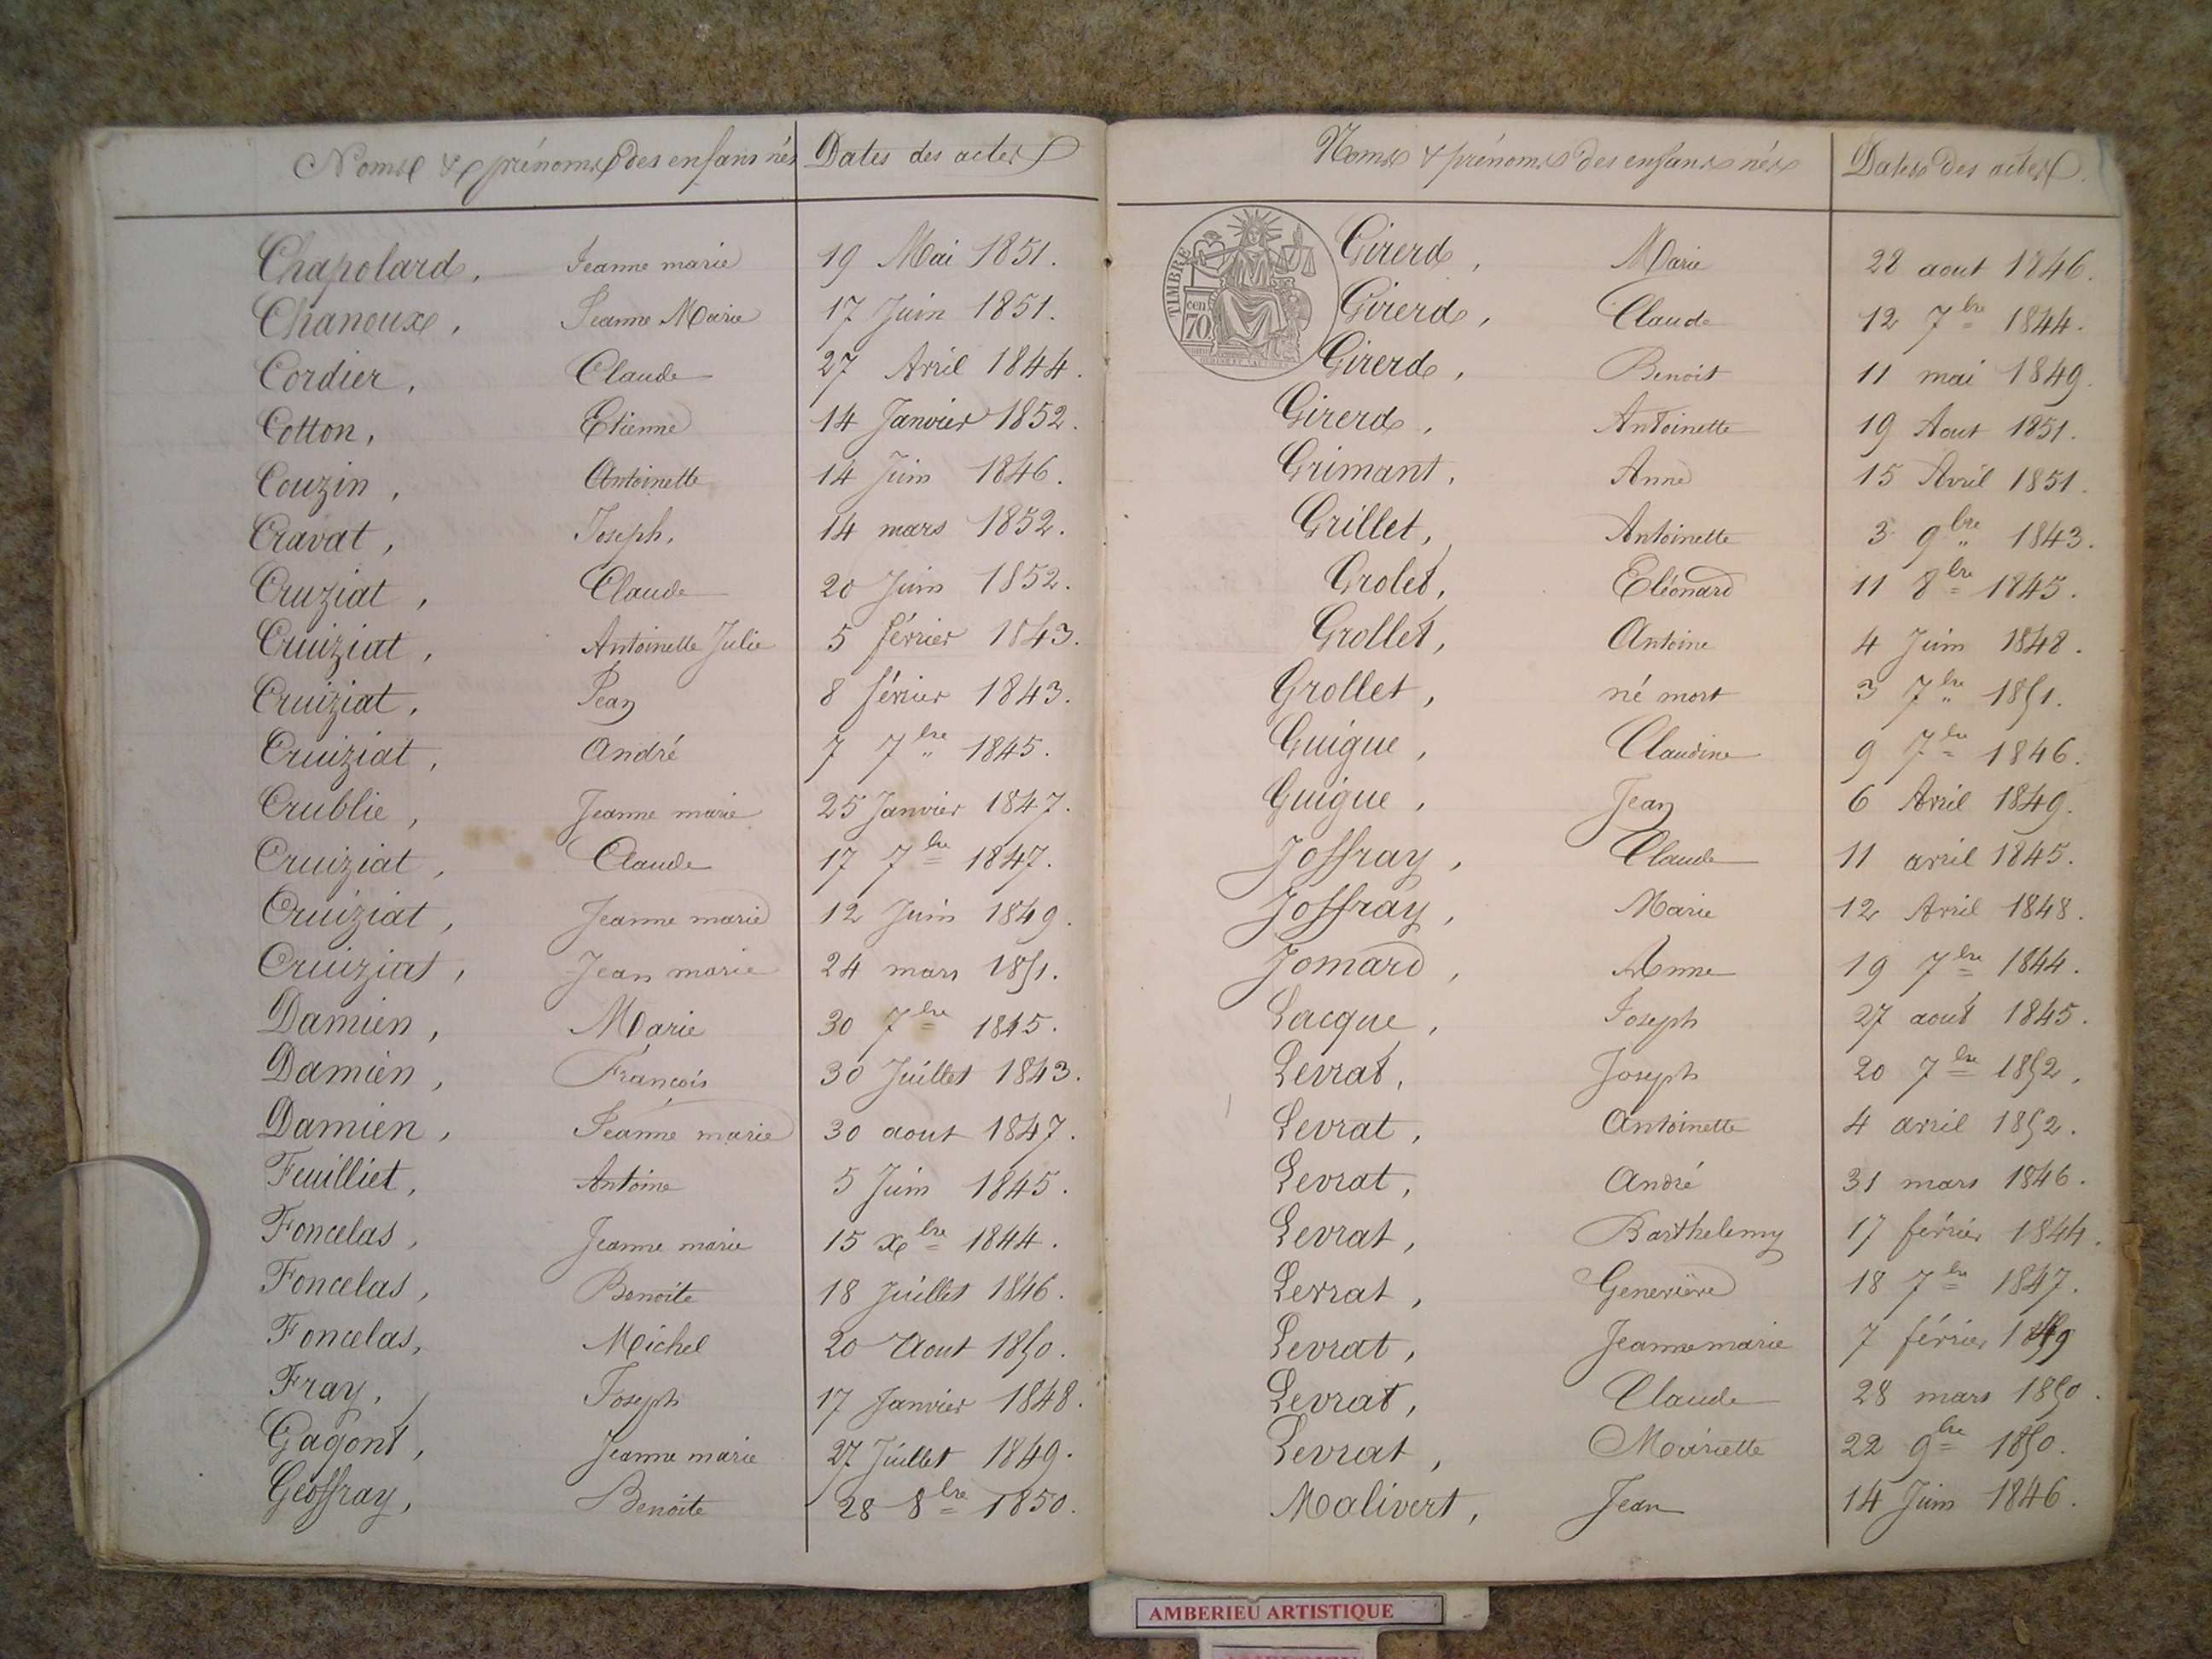 Noms & prénoms des enfans nés Dates des actes
Chapolard, Jeanne marie 19 Mai 1851.
Chanoux, Jeanne Marie 17 Juin 1851.
Cordier, Claude 27 Avril 1844.
Cotton, Etienne 14 Janvier 1852.
Couzin, Antoinette 14 Juin 1846.
Cravat, Joseph, 14 mars 1852.
Cruziat, Claude 20 Juin 1852.
Cruiziat, Antoinette Julie 5 février 1843.
Cruiziat, Jean 8 février 1843.
Cruiziat, André 7 7bre 1845.
Crublie, Jeanne marie 25 Janvier 1847.
Cruiziat, Claude 17 7bre 1847.
Cruiziat, Jeanne marie 12 Juin 1849.
Cruiziat, Jean marie 24 mars 1851.
Damien, Marie 30 7bre 1845.
Damien, François 30 Juillet 1843.
Damien, Jeanne marie 30 aout 1847.
Feuilliet, Antoine 5 Juin 1845.
Foncelas, Jeanne marie 15 xbre 1844.
Foncelas, Benoite 18 Juillet 1846.
Foncelas, Michel 20 Aout 1850.
Fray, Joseph 17 Janvier 1848.
Gagont, Jeanne marie 27 Juillet 1849.
Geoffray, Benoite 28 8bre 1850.
Noms & prénoms des enfans nés Dates des actes.
TIMBRE
70 cen
Girerd, Marie 28 aout 1846.
Girerd, Claude 12 7bre 1844.
Girerd, Benoit 11 mai 1849.
Girerd, Antoinette 19 Aout 1851.
Grimant, Anne 15 Avril 1851.
Grillet, Antoinette 3 9bre 1843.
Grolet, Eléonard 11 8bre 1845.
Grollet, Antoine 4 Juin 1848.
Grollet, né mort 3 7bre 1851.
Guigue, Claudine 9 7bre 1846.
Guigue, Jean 6 Avril 1849.
Joffray, Claude 11 avril 1845.
Joffray, Marie 12 Avril 1848.
Jomard, Anne 19 7bre 1844.
Lacque, Joseph 27 aout 1845.
Levrat, Joseph 20 7bre 1852.
Levrat, Antoinette 4 avril 1852.
Levrat, André 31 mars 1846.
Levrat, Barthelemy 17 février 1844.
Levrat, Geneviève 18 7bre 1847.
Levrat, Jeanne marie 7 février 1849
Levrat, Claude 28 mars 1850.
Levrat, Mariette 22 9bre 1850.
Malivert, Jean 14 Juin 1846.
AMBERIEU ARTISTIQUE